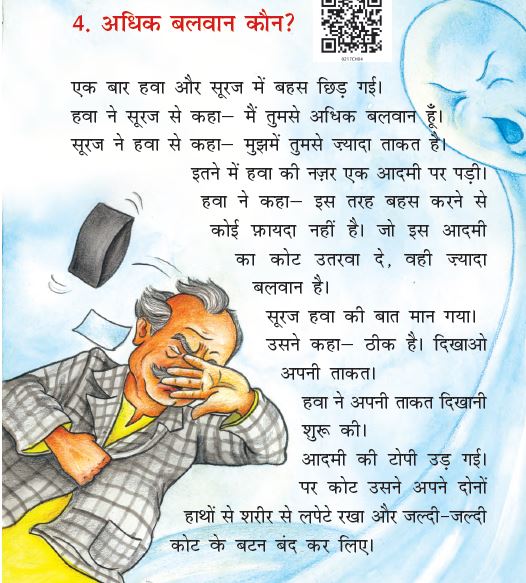 4. अधिक बलवान कौन?
0217CH04
एक बार हवा और सूरज में बहस छिड़ गई।
हवा ने सूरज से कहा– मैं तुमसे अधिक बलवान हूँ।
सूरज ने हवा से कहा– मुझमें तुमसे ज्यादा ताकत है।
इतने में हवा की नज़र एक आदमी पर पड़ी।
हवा ने कहा– इस तरह बहस करने से
कोई फ़ायदा नहीं है। जो इस आदमी
का कोट उतरवा दे, वही ज्यादा
बलवान है।
सूरज हवा की बात मान गया।
उसने कहा– ठीक है। दिखाओ
अपनी ताकत।
हवा ने अपनी ताकत दिखानी
शुरू की।
आदमी की टोपी उड़ गई।
पर कोट उसने अपने दोनों
हाथों से शरीर से लपेटे रखा और जल्दी-जल्दी
कोट के बटन बंद कर लिए।